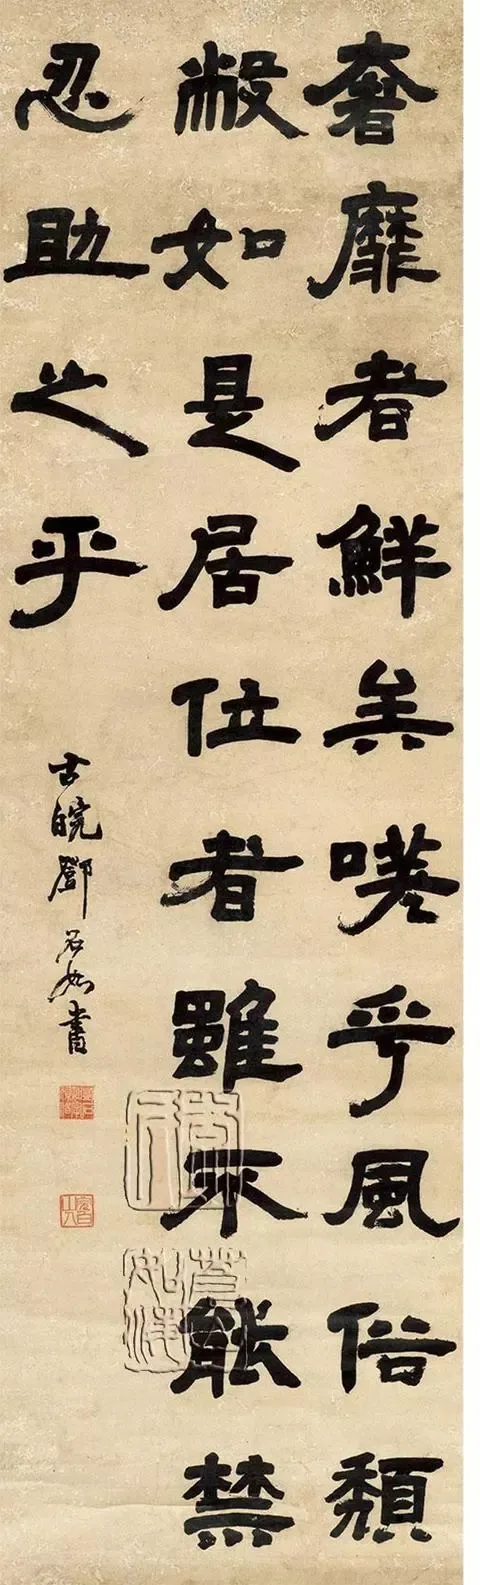 奢靡者鮮矣嘆乎風俗頹
敝如是居位者雖不能禁
忍助之乎
古皖鄧石如書